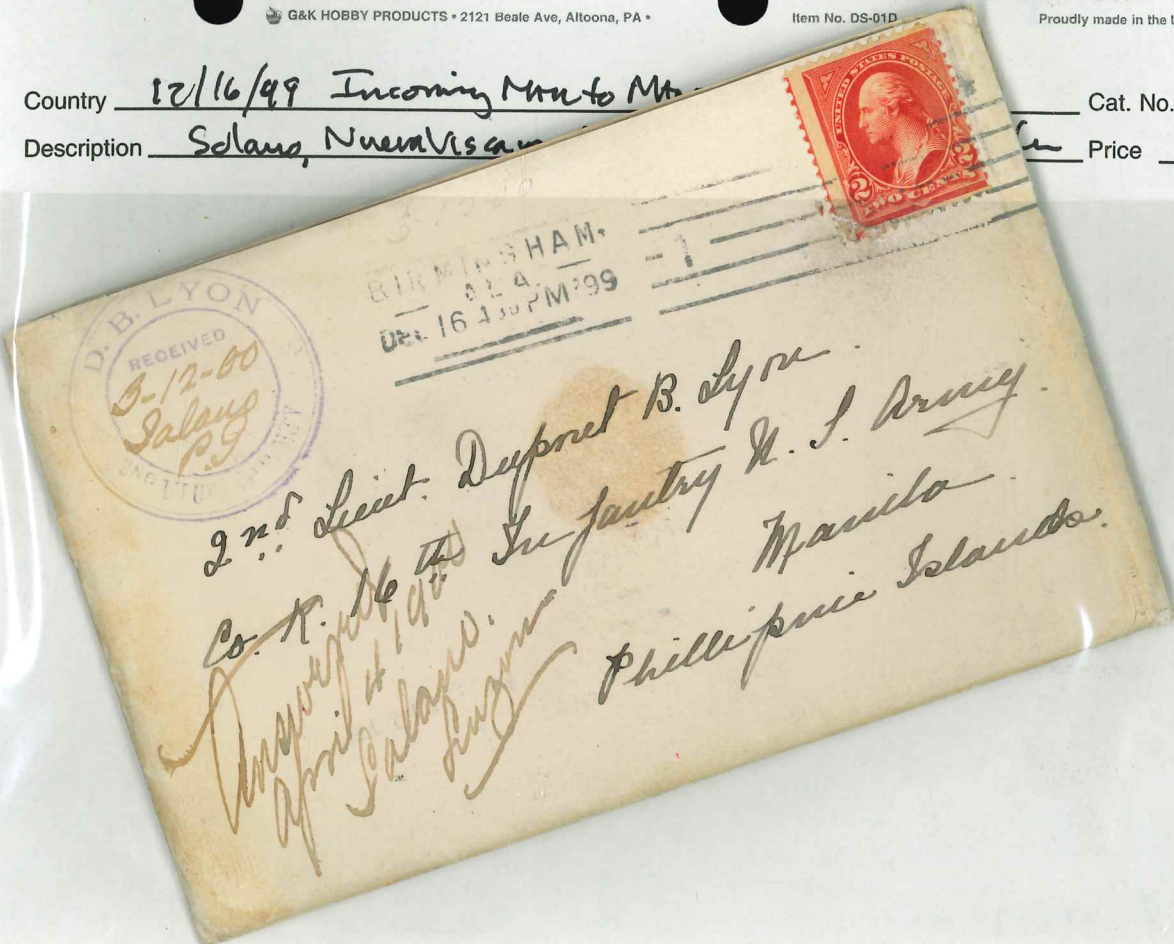 G&K HOBBY PRODUCTS • 2121 Beale Ave, Altoona, PA •
Item No. DS-01D
Proudly made in the U
Country 12/16/99 Incoming
Cat. No.
Description Solano,
Price
UNITED STATES POSTAGE
2 2
TWO CENTS
BIRMINGHAM.
ALA.
DEC 16 430 PM '99
-1
D. B. LYON
RECEIVED
3-12-00
Salano
P.I
2ND LIEUT
2nd Lieut. Dupont B. Lyon
Co. K. 16th Infantry U. S. Army.
Manila
Phillipine Islands.
Answered
April 4 1900
Salano.
Luzon